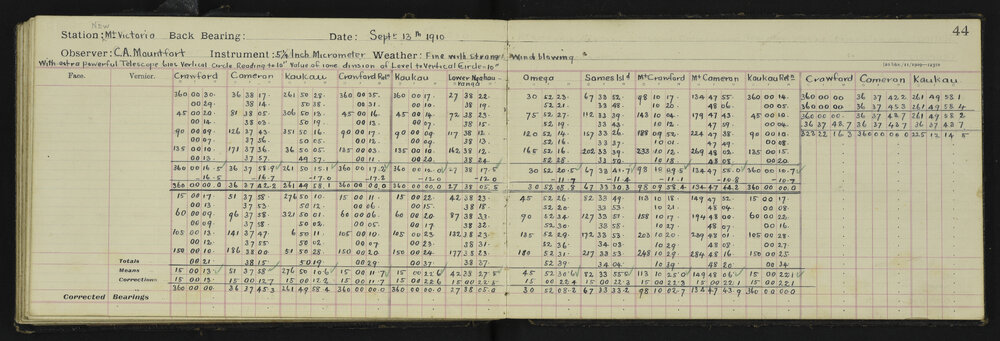 44
New
Station: Mt Victoria Back Bearing: Date: Sept 13th 1910
Observer: C.A. Mountfort Instrument: 5½ Inch Micrometer Weather: Fine with strong wind blowing
With extra powerful Telescope lens Vertical Circle Reading to 10" Value of one division of Level to Vertical Circle = 10"
Face. Vernier. Crawford Cameron Kaukau Crawford Rdo Kaukau Lower Ngahauranga Omega Somes Isld Mt Crawford Mt Cameron Kaukau Rdo Crawford Cameron Kaukau
360 00 30 36 38 17 261 50 28 360 00 35 360 00 17 27 38 22 30 52 23 67 33 52 98 10 17 134 47 55 360 00 14 360 00 00 36 37 42.2 261 49 58.1
00 29 38 14 50 38 00 31 00 10 38 19 52 21 33 48 10 20 48 06 00 05 360 00 00 36 37 45.3 261 49 58.4
45 00 20 81 38 05 306 50 13 45 00 16 45 00 14 72 38 23 75 52 27 112 33 39 143 10 04 179 47 43 45 00 10 360 00 00 36 37 43.7 261 49 58.2
00 14 38 03 50 19 00 13 00 07 38 15 52 19 33 43 10 12 47 59 00 04 36 37 43.7 36 37 43.7 36 37 43.7
90 00 09 126 37 43 351 50 16 90 00 17 90 00 09 117 38 12 120 52 14 157 33 26 188 09 52 224 47 38 90 00 10 323 22 16.3 360 00 00.0 225 12 14.5
00 07 37 36 50 05 00 12 00 09 38 13 52 16 33 37 10 01 47 49 00 08
135 00 10 171 37 36 36 50 05 135 00 03 135 00 10 162 38 12 165 52 16 202 33 39 233 10 12 269 48 02 135 00 15
00 13 37 57 49 57 00 11 00 20 38 24 52 28 33 50 10 18 48 08 00 20
360 00 16.5 36 37 58.9 261 50 15.1 360 00 17.2 360 00 12.0 27 38 17.5 30 52 20.5 67 33 41.7 98 10 09.5 134 47 55.0 360 00 10.7
-16.5 -16.7 -17.0 -17.2 -12.0 -12.0 -11.7 -11.4 -11.1 -10.8 -10.7
360 00 00.0 36 37 42.2 261 49 58.1 360 00 00.0 360 00 00.0 27 38 05.5 30 52 08.8 67 33 30.3 98 09 58.4 134 47 44.2 360 00 00.0
15 00 17 51 37 58 276 50 10 15 00 11 15 00 22 42 38 23 45 52 26 82 33 49 113 10 18 149 47 52 15 00 17
00 13 37 53 50 12 00 06 00 15 38 18 52 20 33 53 10 21 48 04 00 08
60 00 09 96 37 58 321 50 01 60 00 06 60 00 20 87 38 33 90 52 34 127 33 51 158 10 17 194 48 00 60 00 22
00 09 37 58 50 02 00 05 00 17 38 32 52 30 33 58 10 27 48 07 00 16
105 00 13 141 37 47 6 50 11 105 00 10 105 00 23 132 38 23 135 52 29 172 33 53 203 10 20 239 48 01 105 00 28
00 12 37 55 50 02 00 07 00 23 38 31 52 36 34 03 10 29 48 08 00 27
150 00 10 186 38 00 51 50 28 150 00 20 150 00 24 177 38 23 180 52 31 217 33 53 248 10 29 284 48 16 150 00 25
Totals 00 21 38 15 50 19 00 29 00 37 38 37 52 39 34 04 10 39 48 20 00 34
Means 15 00 13 51 37 58 276 50 10.6 15 00 11.7 15 00 22.6 42 38 27.5 45 52 30.6 82 33 55.5 113 10 25.0 149 48 06 15 00 22.1
Corrections 15 00 13 15 00 12.7 15 00 12.2 15 00 11.7 15 00 22.6 15 00 22.5 15 00 22.4 15 00 22.3 15 00 22.3 15 00 22.1 15 00 22.1
360 00 00 36 37 45.3 261 49 58.4 360 00 00.0 360 00 00.0 27 38 05.0 30 52 08.2 67 33 33.2 98 10 02.7 134 47 43.9 360 00 00.0
Corrected Bearings